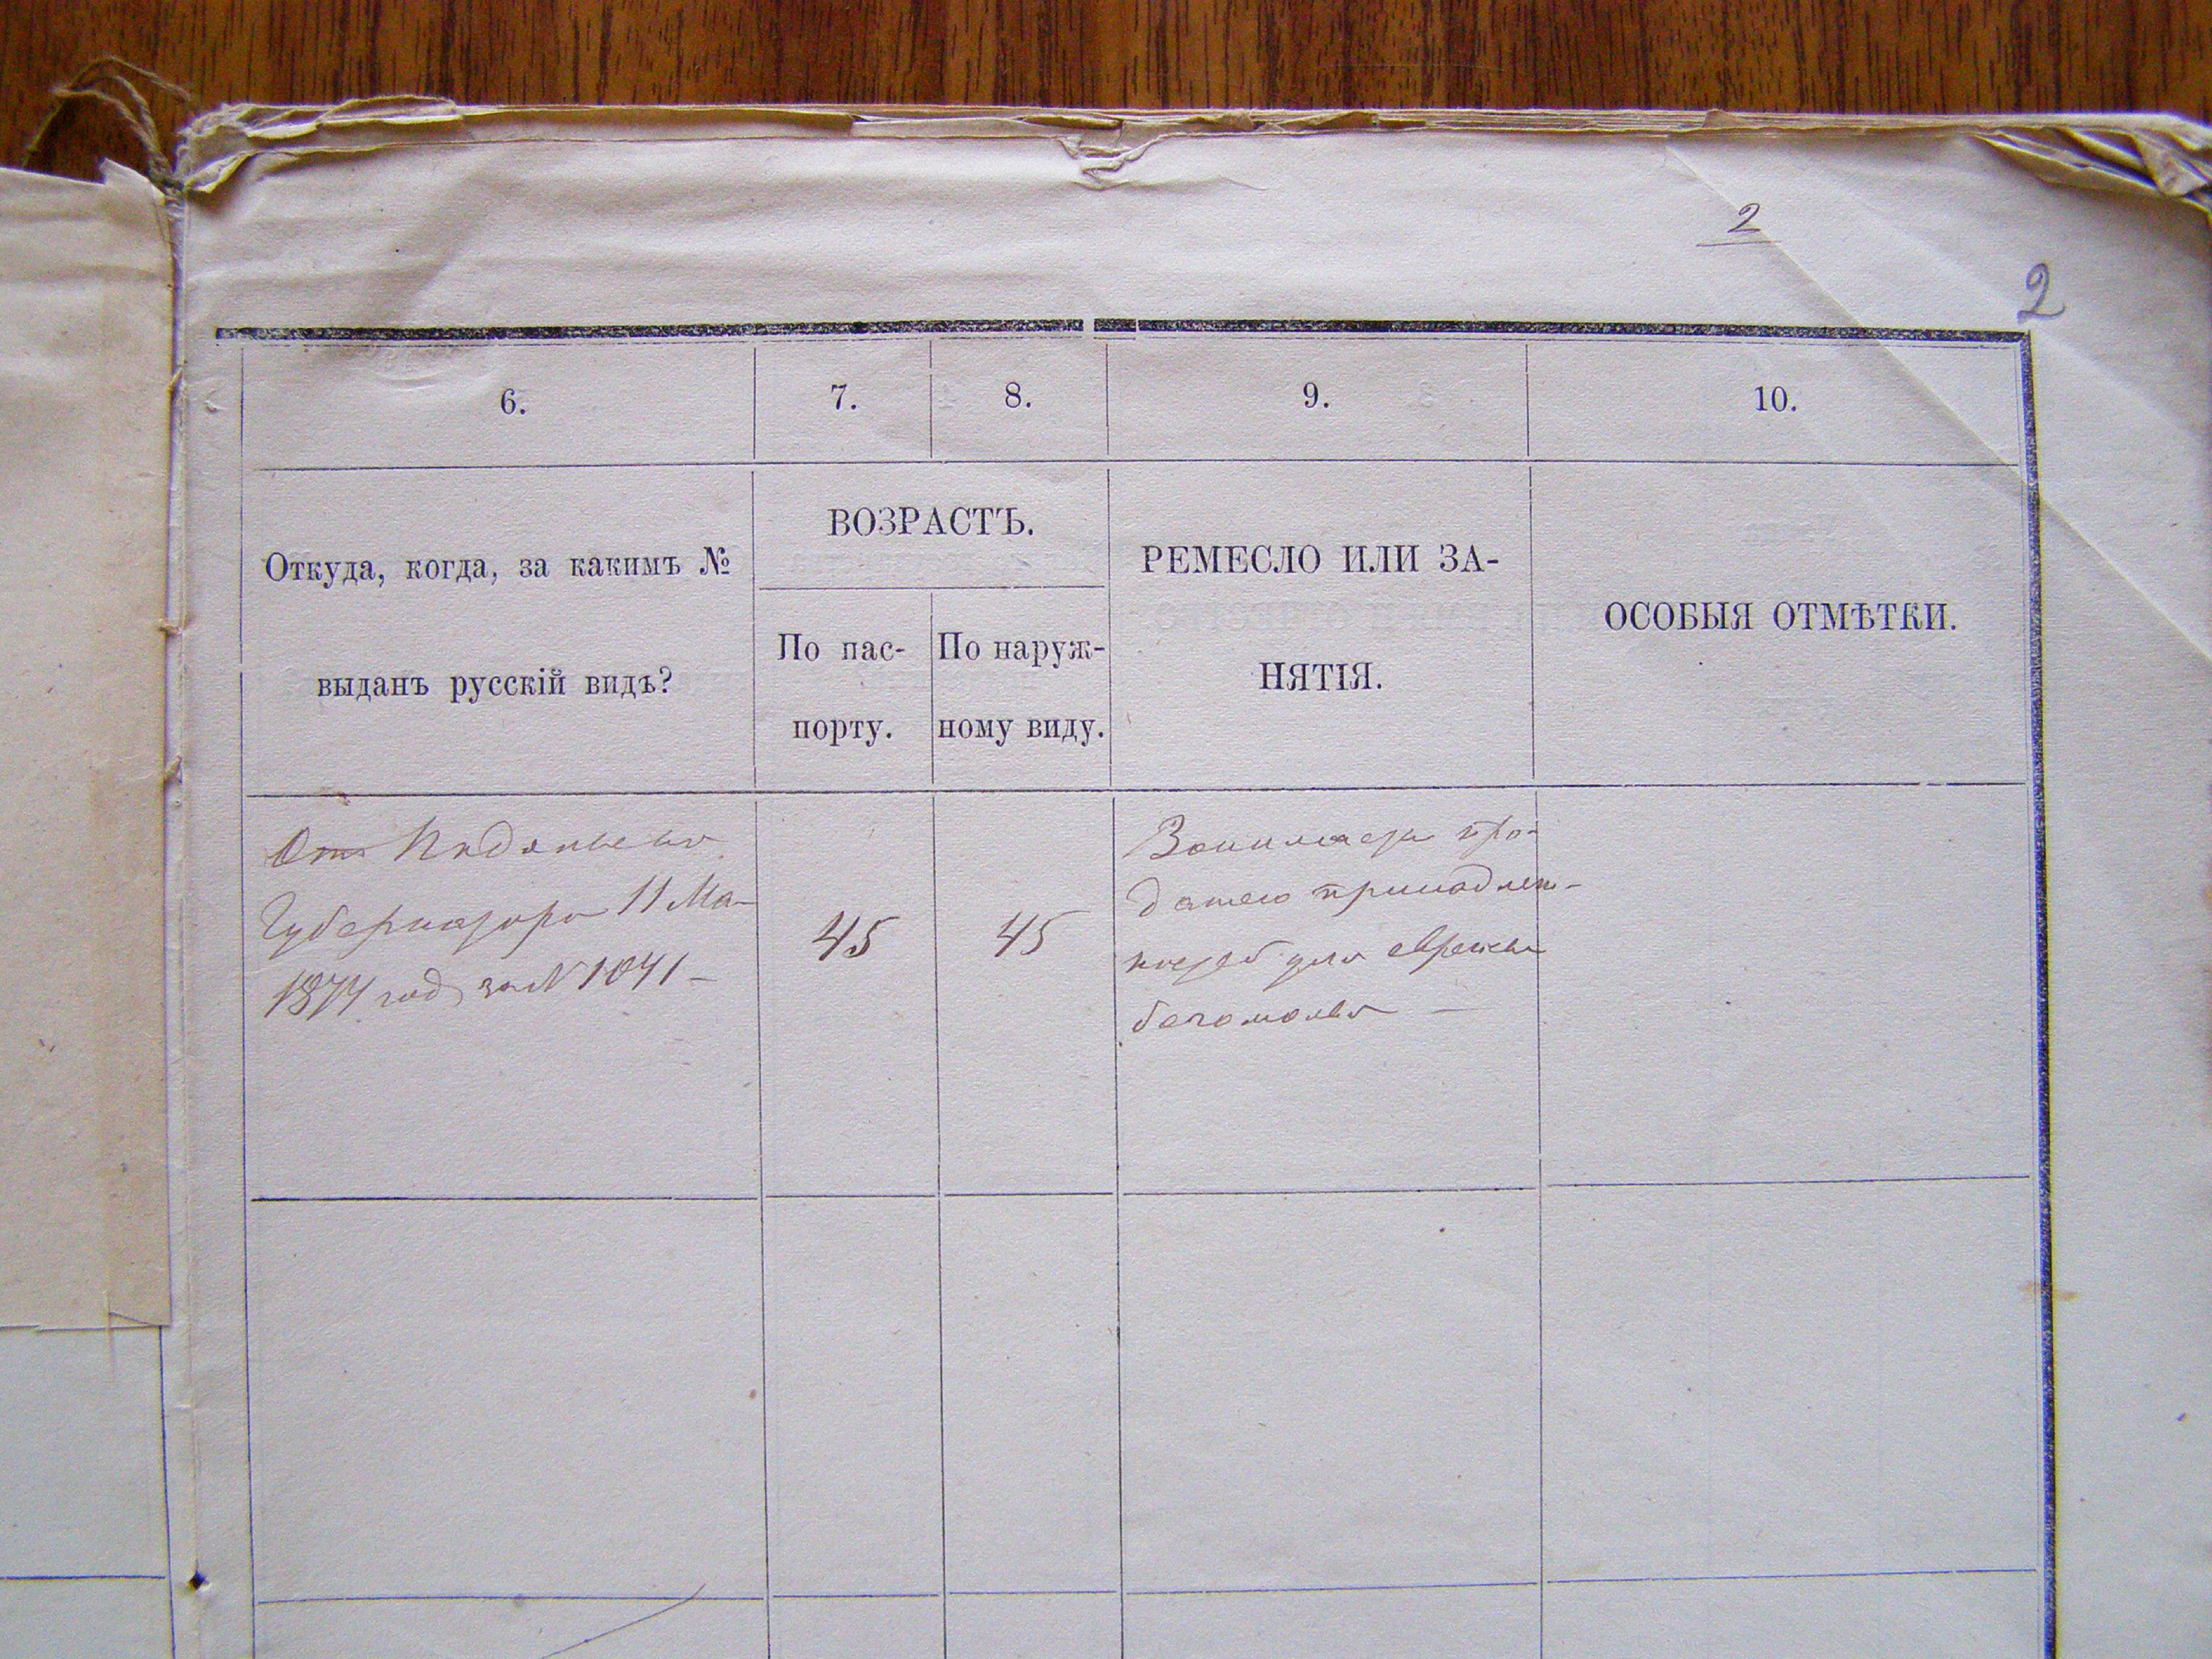 2
2
6.
7.
8.
9.
10.
Откуда, когда, за какимъ №
выданъ русскій видъ?
ВОЗРАСТЪ.
По пас-
порту.
По наруж-
ному виду.
РЕМЕСЛО ИЛИ ЗА-
НЯТІЯ.
ОСОБЫЯ ОТМѢТКИ.
От
Губернатора 11 Ма-
1874 год за № 1041 –
45
45
про-
дажею принадлеж-
ностей для еврейск
богомолья –